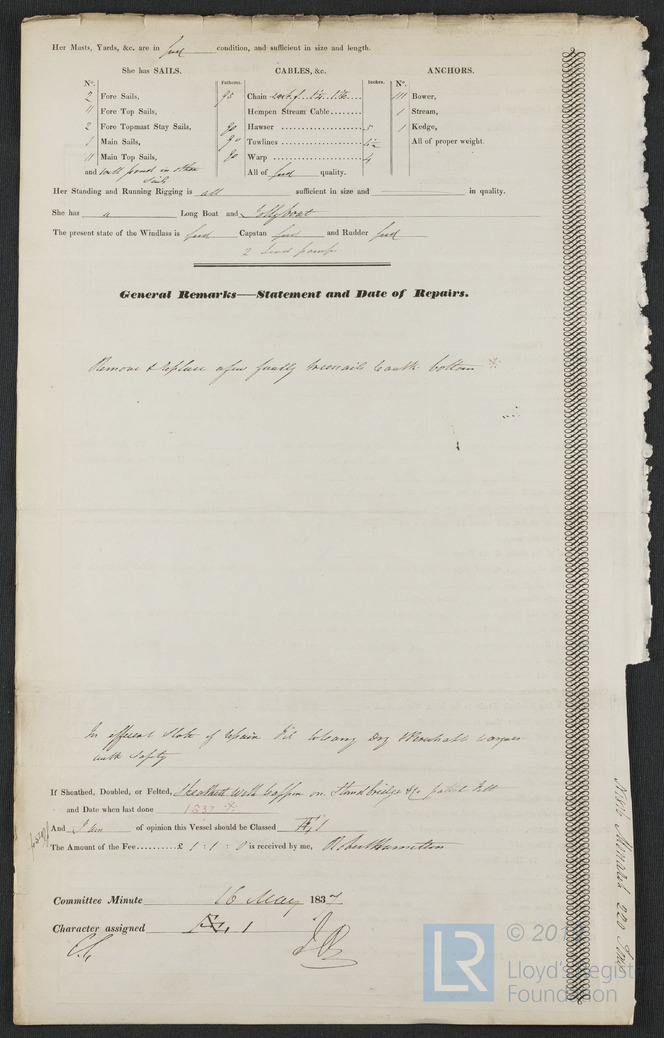 Her Masts, Yards, &c. are in good condition, and sufficient in size and length.
She has SAILS.
Nº.
2 Fore Sails,
11 Fore Top Sails,
2 Fore Topmast Stay Sails,
1 Main Sails,
11 Main Top Sails,
and well found in other
Sails
CABLES, &c.
Fathoms. Inches.
95 Chain
Hempen Stream Cable
90 Hawser 5
90 Towlines
80 Warp 4
All of good quality.
ANCHORS.
Nº.
111 Bower,
1 Stream,
1 Kedge,
All of proper weight.
Her Standing and Running Rigging is all sufficient in size and in quality.
She has a Long Boat and Jollyboat
The present state of the Windlass is good Capstan good and Rudder good
2 pumps
General Remarks—Statement and Date of Repairs.
Remove & replace a few faulty treenails Caulk bottom
In efficient State of repair Dry
with Safety
If Sheathed, Doubled, or Felted, Sheathed with Copper on &c patent Felt
and Date when last done 1837
And I am of opinion this Vessel should be Classed 1
The Amount of the Fee..........£ 1 : 1 : 0 is received by me, Robert Hamilton
Committee Minute 16 May 1837
Character assigned 1
Minaret 220 Tons
LR
© 201
Lloyd's Regist
Foundation